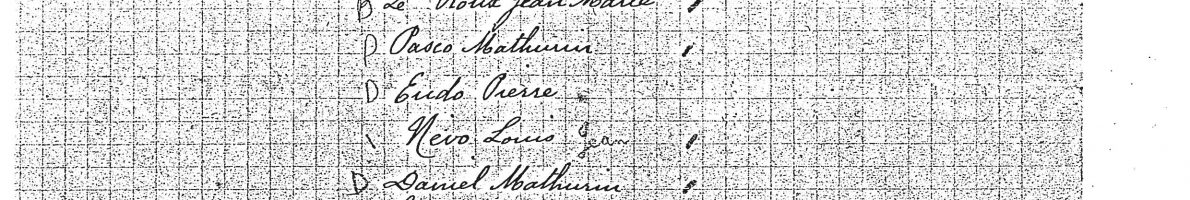 D Le Roux Jean Marie "
D Pasco Mathurin "
D Eudo Pierre "
\ Nevo Louis Jean "
D Daniel Mathurin "